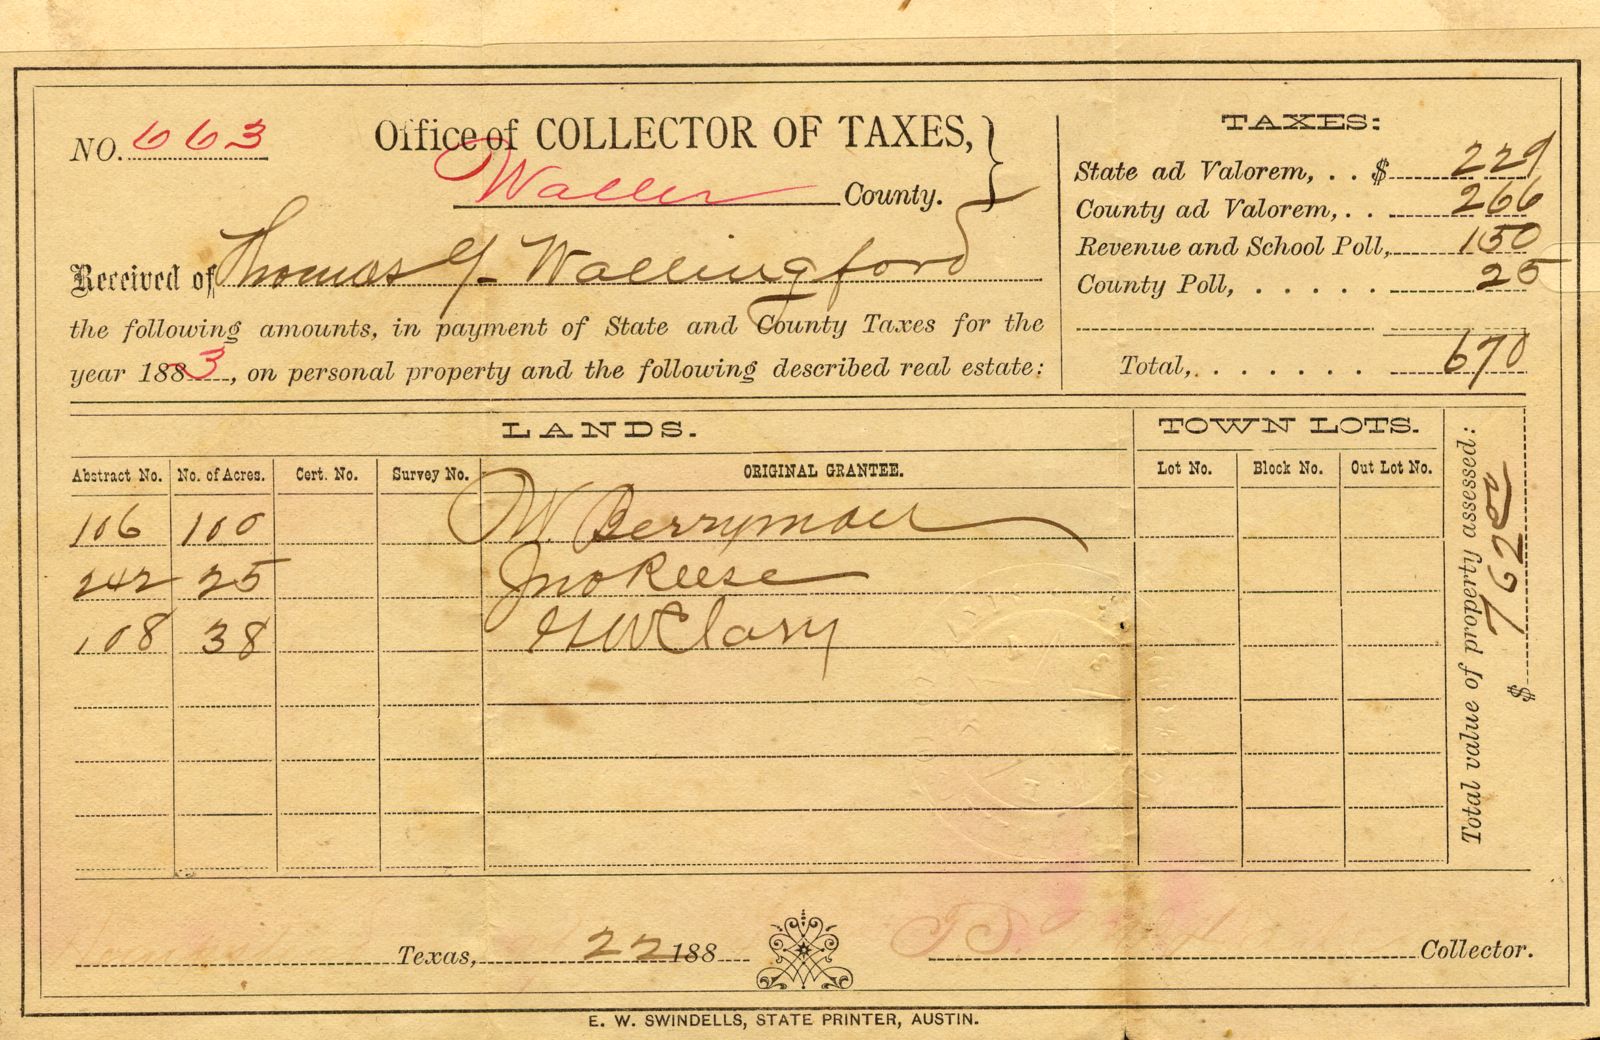 NO. 663
Office of COLLECTOR OF TAXES,
Waller County.
Received of Thomas Y. Wallingford
the following amounts, in payment of State and County Taxes for the
year 1883, on personal property and the following described real estate:
TAXES:
State ad Valorem, . . $ 229
County ad Valorem, . . 266
Revenue and School Poll, 150
County Poll, . . . . . . 25
Total, . . . . . . . 670
LANDS. TOWN LOTS.
Abstract No. No. of Acres. Cert. No. Survey No. ORIGINAL GRANTEE. Lot No. Block No. Out Lot No.
106 100 W. Berryman
242 25 Jno Reese
108 38 Clary
Total value of property assessed:
$ 762
Texas, 22 188
Collector.
E. W. SWINDELLS, STATE PRINTER, AUSTIN.